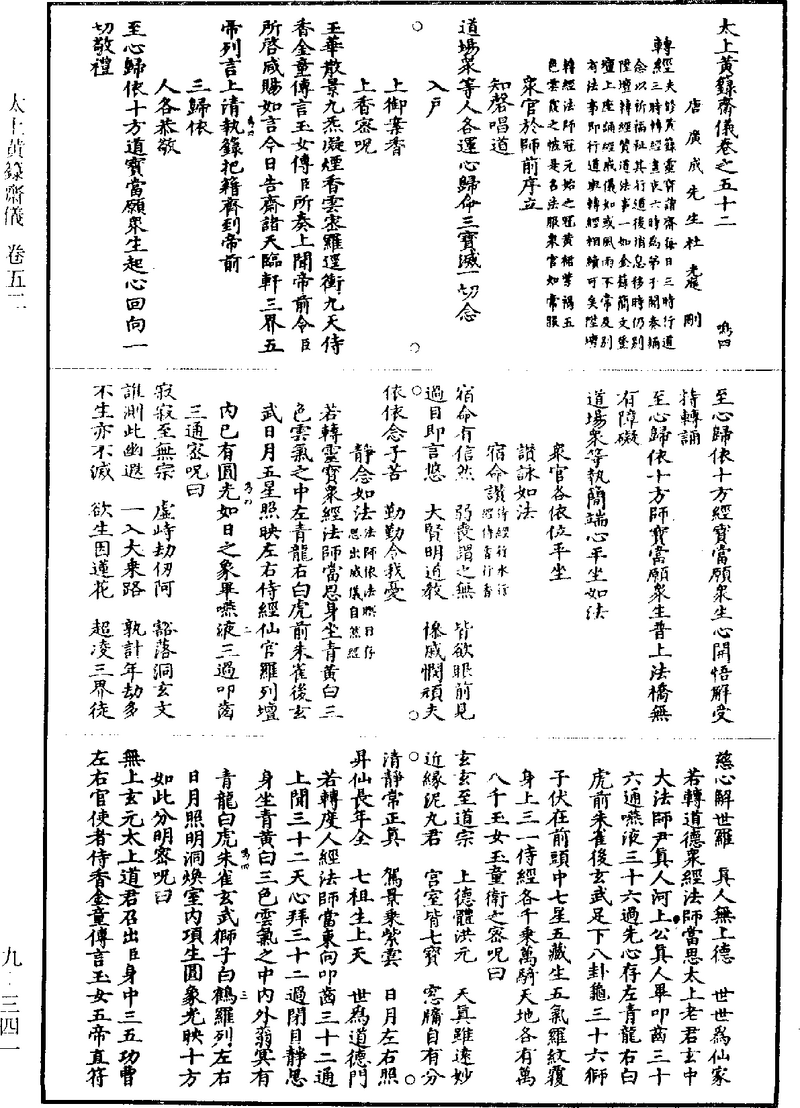 太上黃籙齋儀卷之五十二
唐廣成先生杜光庭刪
鳴四
轉經
夫修黃籙靈寶諸齋每日三時行道
三時轉經晝夜六時為弟子關奏誦
念以祈福祉其行道後消息移時仍別
陞壇轉經贊道法事一如金籙簡文登
壇上座誦經威儀如或風雨不常及別
有法事即行道與轉經相續可矣陞壇
轉經法師冠元始之冠黃裙紫褐五
色雲霞之帔是名法服衆官如常服
衆官於師前序立
知磬唱道
道場衆等人各運心歸命三寶滅一切念
入戶
上御案香
上香密呪
玉華散景九炁凝煙香雲密羅逕衝九天侍
香金童傳言玉女傳臣所奏上聞帝前令臣
所啓咸賜如言今日告齋諸天臨軒三界五
帝列言上清執籙把籍齊到帝前
三歸依
人各恭敬
至心歸依十方道寶當願衆生起心回向一
切敬禮
至心歸依十方經寶當願衆生心開悟解受
持轉誦
至心歸依十方師寶當願衆生普上法橋無
有障礙
道場衆等執簡端心平坐如法
衆官各依位平坐
讚詠如法
宿命讚 侍經行水行經侍香行香
宿命有信然 弱喪謂之無 皆欲眼前見
過目即言悠 大賢明道教 慘慼憫頑夫
依依念子苦 勤勤令我憂
靜念如法 法師依法瞑目存思出威儀自然經
若轉靈寶衆經法師當思身坐青黃白三
色雲氣之中左青龍右白虎前朱雀後玄
武日月五星照映左右侍經仙官羅列壇
內已有圓光如日之象畢嚥液三過叩齒
三通密呪曰
寂寂至無宗 虛峙劫仞阿 豁落洞玄文
誰測此幽遐 一入大乘路 孰計年劫多
不生亦不滅 欲生因蓮花 超凌三界徒
慈心解世羅 真人無上德 世世為仙家
若轉道德衆經法師當思太上老君玄中
大法師尹真人河上公真人畢叩齒三十
六通嚥液三十六過先心存左青龍右白
虎前朱雀後玄武足下八卦龜三十六獅
子伏在前頭中七星五藏生五氣羅紋覆
身上三一侍經各千乘萬騎天地各有萬
八千玉女玉童衛之密呪曰
玄玄至道宗 上德體洪元 天真雖遠妙
近緣泥丸君 宮室皆七寶 窓牖自有分
清靜常正真 駕景乘紫雲 日月左右照
昇仙長年全 七祖生上天 世為道德門
若轉度人經法師當東向叩齒三十二通
上聞三十二天心拜三十二過閉目靜思
身坐青黃白三色雲氣之中內外蓊冥有
青龍白虎朱雀玄武獅子白鶴羅列左右
日月照明洞煥室內項生圓象光映十方
如此分明密呪曰
無上玄元太上道君召出臣身中三五功曹
左右官使者侍香金童傳言玉女五帝直符
太上黃籙齋儀 卷五二
九·三四一